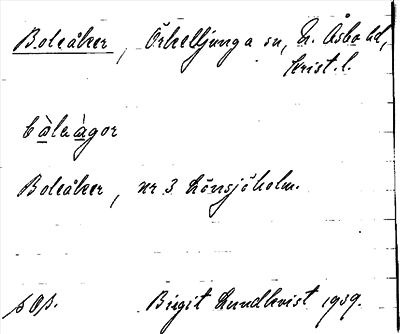 Boleåker, Örkelljunga sn, N. Åsbo hd,
Krist. l.
bàlaàgor
Boleåker, nr 3 Lönsjöholm.
Birgit Lundkvist 1939.